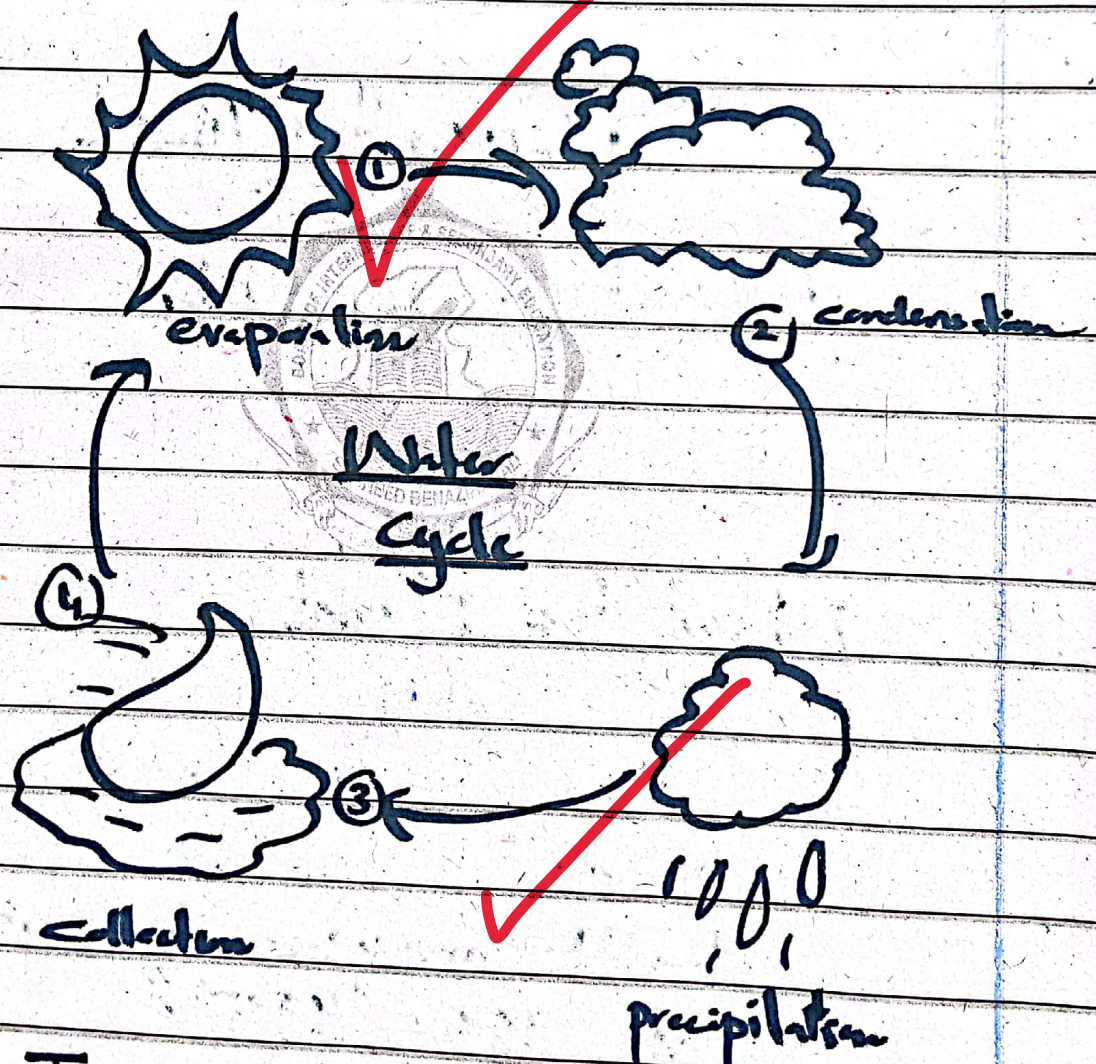 ①
evaporation
② condensation
Water
Cycle
④
③
Collection
precipitation